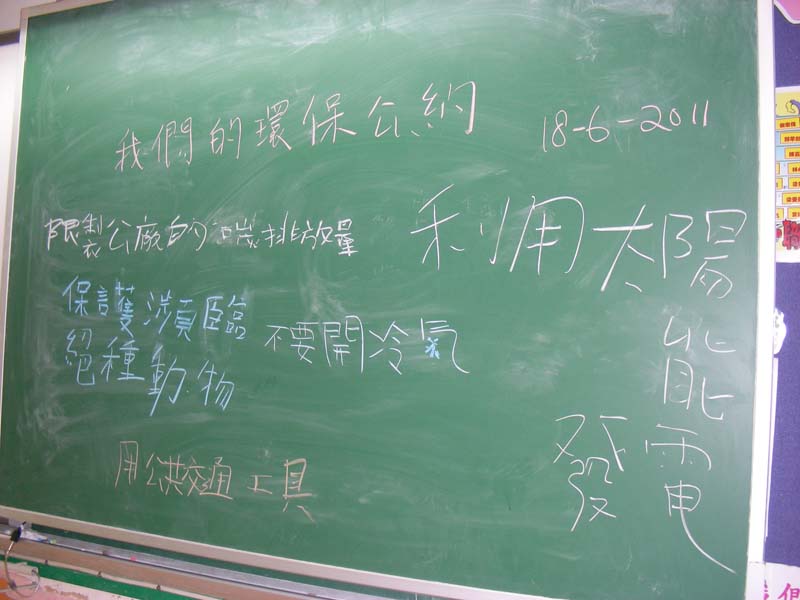 我們的環保公約
18-6-2011
限製公廠的碳排放量
利用太陽
能
發電
保護瀕臨
絕種動物
不要開冷氣
用公共交通工具